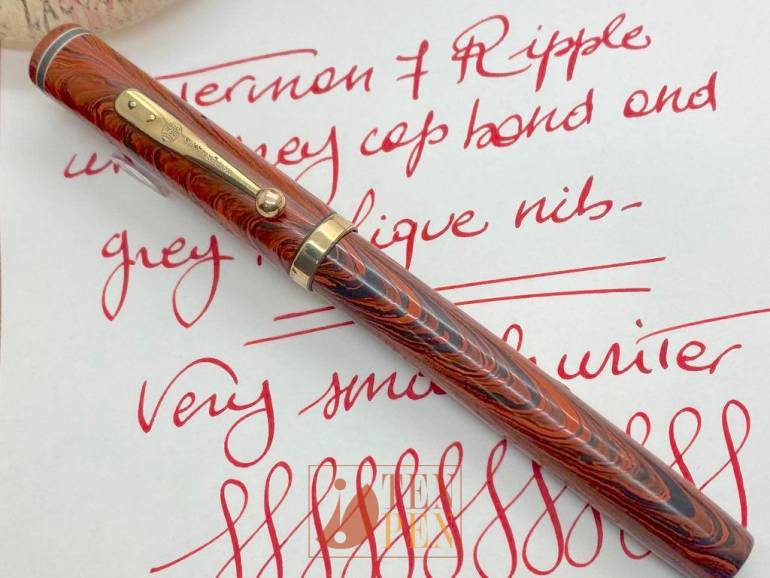 terman 7 Ripple
cap band and
grey ique nib-
Very smooth writer
TEN
PEN